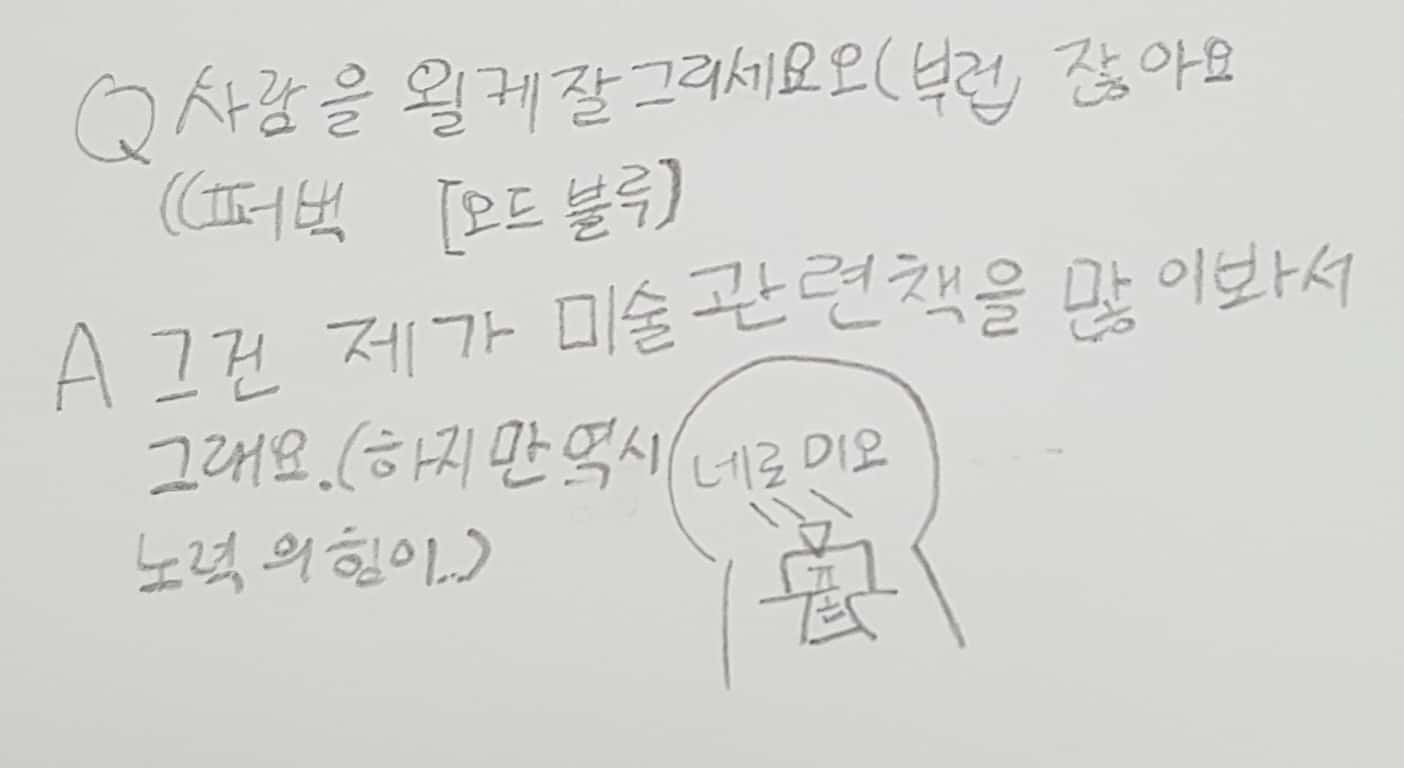 Q 사람을 욀케잘그리세요오(부럽 잖아요
((퍼벅 [오드블루]
A 그건 제가 미술관련책을 많이봐서
그래요.(하지만역시
노력의힘이..)
네로미오